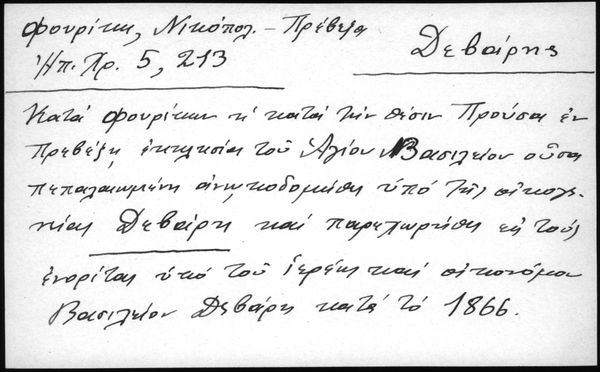 Φουρίκη, Νικόπολ. – Πρέβεζα
Ἠπ. Χρ. 5, 213
Δεβάρης
Κατά Φουρίκην ἡ κατά τήν θέσιν Προύσα ἐν
Πρεβέζῃ ἐκκλησία τοῦ Ἁγίου Βασιλείου οὖσα
πεπαλαιωμένη ἀνῳκοδομήθη ὑπό τῆς οἰκογε-
νείας Δεβάρη καί παρεχωρήθη εἰς τούς
ἐνορίτας ὑπό τοῦ ἱερέως καί οἰκονόμου
Βασιλείου Δεβάρη κατά τό 1866.